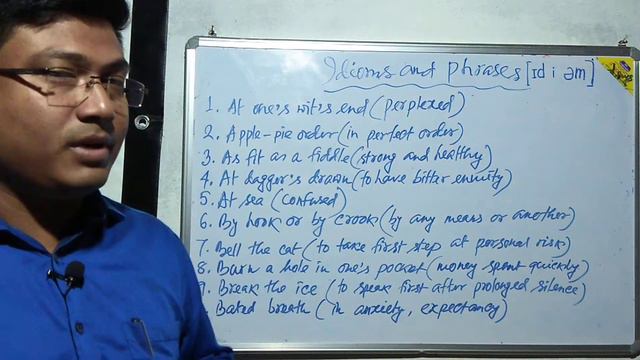 Idioms and phrases [Id i əm]
1. At one's wit's end (perplexed)
2. Apple-pie order (in perfect order)
3. As fit as a fiddle (strong and healthy)
4. At dagger's drawn (to have bitter enmity)
5. At sea (confused)
6. By hook or by crook (by any means or another)
7. Bell the cat (to take first step at personal risk)
8. Burn a hole in one's pocket (money spent quickly)
9. Break the ice (to speak first after prolonged silence)
Bated breath (in anxiety, expectancy)